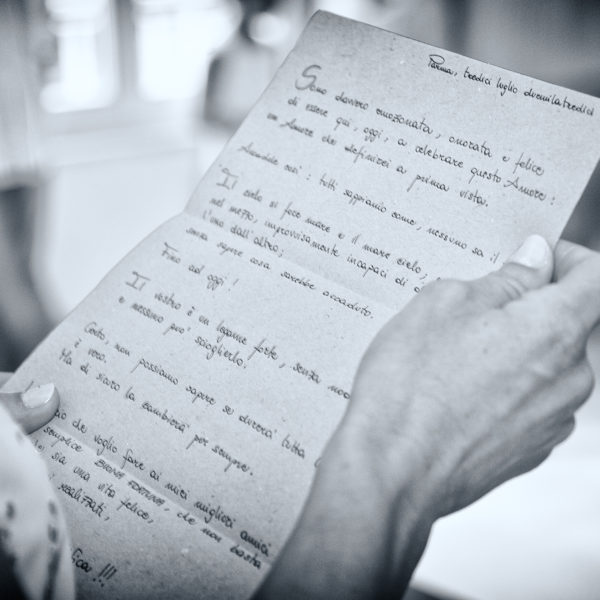 Parma, tredici luglio duemilatredici
Sono davvero emozionata, onorata e felice
di essere qui, oggi, a celebrare questo Amore:
un Amore che definirei a prima vista.
Accadde così: tutti sappiamo come, nessuno sa il
Il cielo si fece mare e il mare cielo,
nel mezzo, improvvisamente incapaci di
l'uno dall'altro,
senza sapere cosa sarebbe accaduto.
Fino ad oggi!
Il vostro è un legame forte, senza
e nessuno può scioglierlo.
Certo, non possiamo sapere se durerà tutta
è vero.
Ma di sicuro la cambierà per sempre.
che voglio fare ai miei migliori amici
semplice BUONA FORTUNA, che non basta
sia una vita felice,
realizzati,
!!!